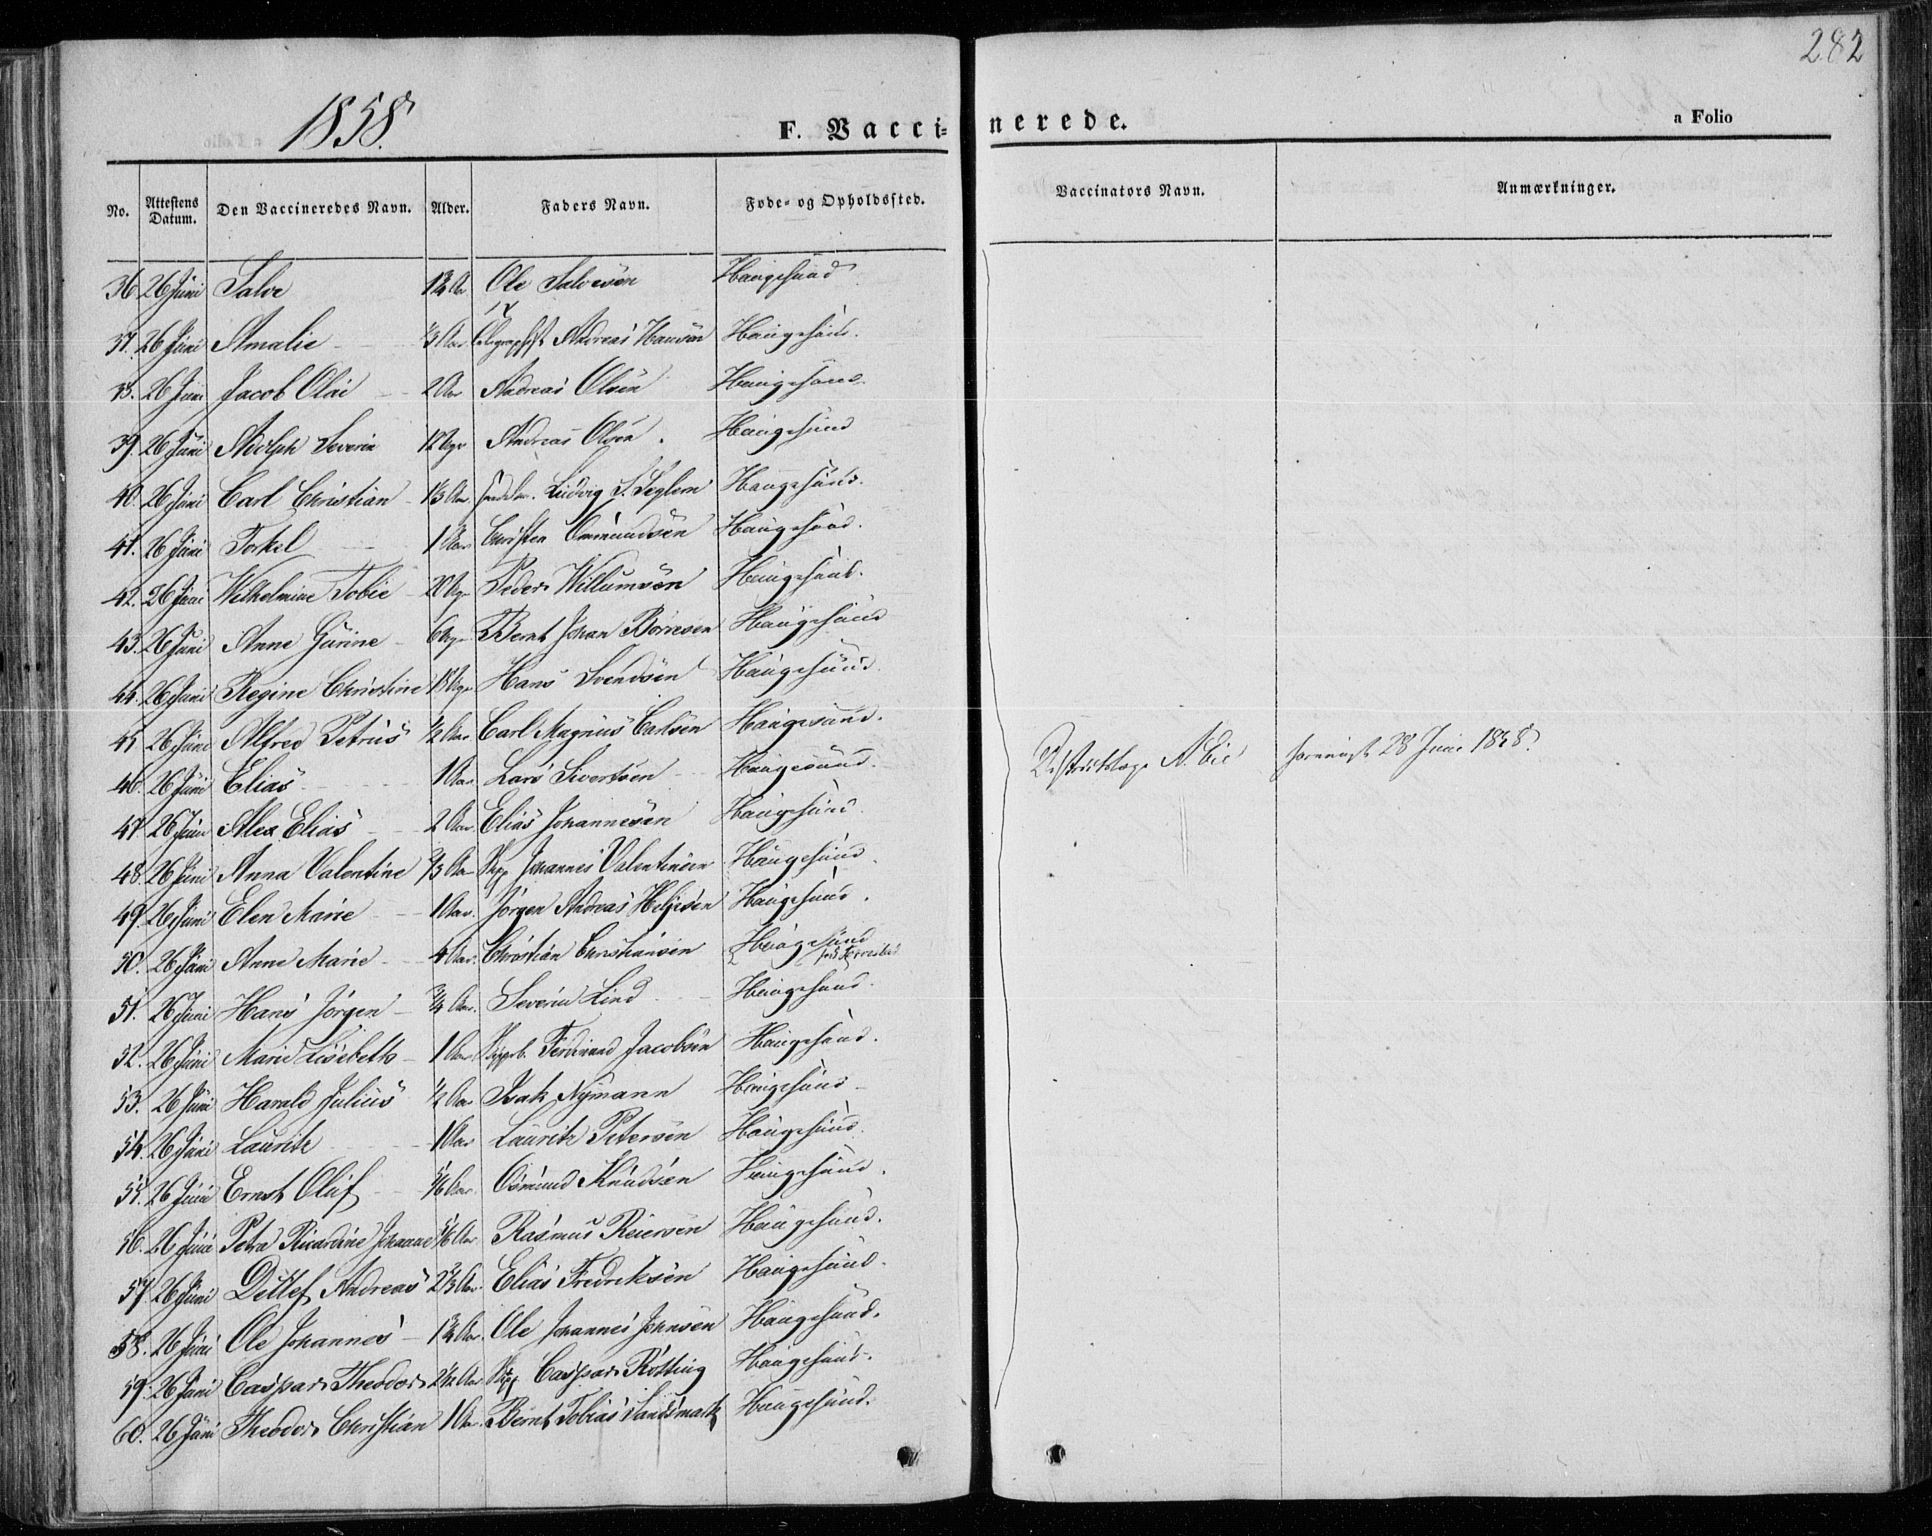 282
1858.
F. Vaccinerede.
a Folio
No. Attestens Datum. Den Vaccineredes Navn. Alder. Faders Navn. Føde- og Opholdssted. Vaccinators Navn. Anmærkninger.
36. 26 Juni Salve Ole Salvesen Haugesund
37. 26 Juni Amalie Andreas Hansen Haugesund.
38. 26 Juni Jacob Olai 2 Aar Andreas Olsen Haugesund.
39. 26 Juni Adolph Severin Andreas Olsen. Haugesund
40. 26 Juni Carl Christian Ludvig S. Seglem Haugesund.
41. 26 Juni Torkel 1 Aar Christen Ommundsen Haugesund.
42. 26 Juni Wilhelmine Tobie Peder Willumsen Haugesund.
43. 26 Juni Anne Gurine Bernt Johan Børresen Haugesund
44. 26 Juni Regine Christine Hans Svendsen Haugesund.
45. 26 Juni Alfred Petrus ½ Aar Carl Magnus Carlsen Haugesund.
46. 26 Juni Elias 1 Aar Lars Sivertsen Haugesund. N. Eie 28 Juni 1858.
47. 26 Juni Alex Elias 2 Aar Elias Johannesen Haugesund
48. 26 Juni Anna Valentine Johannes Valentinsen Haugesund.
49. 26 Juni Elen Marie 1 Aar. Jørgen Andreas Heljesen Haugesund.
50. 26 Juni Anne Marie 4 Aar. Christian Christiansen Haugesund
51. 26 Juni Hans Jørgen ¾ Aar. Severin Lind Haugesund.
52. 26 Juni Marie Lisebeth 1 Aar Ferdinand Jacobsen Haugesund.
53. 26 Juni Harald Julius ½ Aar Isak Nymann Haugesund
54. 26 Juni Lauritz 1 Aar Lauritz Petersen Haugesund.
55. 26 Juni Ernst Oluf 5/6 Aar. Osmund Knudsen Haugesund.
56. 26 Juni Petra Ricardine Johanne 5/6 Aar Rasmus Reiersen Haugesund.
57. 26 Juni Detlef Andreas 2⅔ Aar. Elias Fredriksen Haugesund.
58. 26 Juni Ole Johannes 1¾ Aar. Ole Johannes Johnsen Haugesund.
59. 26 Juni Caspar Theodor 2½ Aar Caspar Røtting Haugesund.
60. 26 Juni Theodor Christian 1 Aar. Bernt Tobias Sandsmark Haugesund.